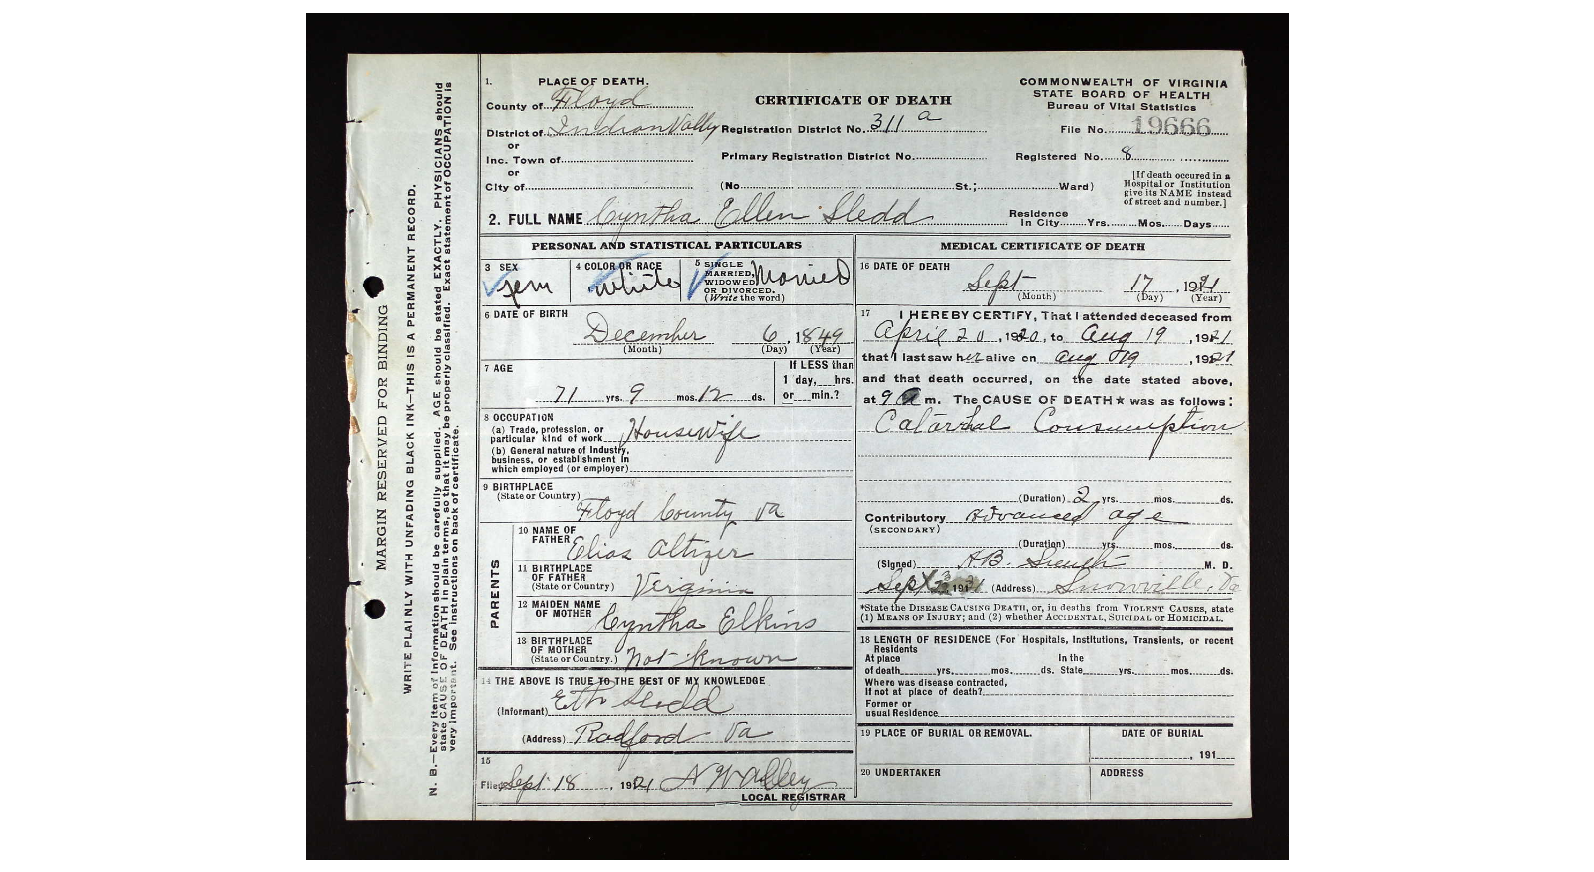 MARGIN RESERVED FOR BINDING
WRITE PLAINLY WITH UNFADING BLACK INK—THIS IS A PERMANENT RECORD.
N. B.—Every item of information should be carefully supplied. AGE should be stated EXACTLY. PHYSICIANS should
state CAUSE OF DEATH in plain terms, so that it may be properly classified. Exact statement of OCCUPATION is
very important. See instructions on back of certificate.
1. PLACE OF DEATH.
County of Floyd
District of Indian Vally
or
Inc. Town of
or
City of
CERTIFICATE OF DEATH
Registration District No. 311 a
Primary Registration District No.
(No. St.; Ward)
COMMONWEALTH OF VIRGINIA
STATE BOARD OF HEALTH
Bureau of Vital Statistics
File No. 19666
Registered No. 8
[If death occured in a
Hospital or Institution
give its NAME instead
of street and number.]
2. FULL NAME Cyntha Ellen Sledd
Residence
In City Yrs. Mos. Days
PERSONAL AND STATISTICAL PARTICULARS
3 SEX
fem
4 COLOR OR RACE
White
5 SINGLE
MARRIED,
WIDOWED
OR DIVORCED.
(Write the word)
Married
6 DATE OF BIRTH
December 6, 1849
(Month) (Day) (Year)
7 AGE
71 yrs. 9 mos. 12 ds.
If LESS than
1 day, hrs.
or min.?
8 OCCUPATION
(a) Trade, profession, or
particular kind of work HouseWife
(b) General nature of Industry,
business, or establishment in
which employed (or employer)
9 BIRTHPLACE
(State or Country)
Floyd County Va
PARENTS
10 NAME OF
FATHER
Elias Altizer
11 BIRTHPLACE
OF FATHER
(State or Country) Verginia
12 MAIDEN NAME
OF MOTHER
Cyntha Elkins
13 BIRTHPLACE
OF MOTHER
(State or Country.) Not Known
14 THE ABOVE IS TRUE TO THE BEST OF MY KNOWLEDGE
(Informant) Sledd
(Address) Radford Va
15
Filed Sept 18, 1921
LOCAL REGISTRAR
MEDICAL CERTIFICATE OF DEATH
16 DATE OF DEATH
Sept 17, 1921
(Month) (Day) (Year)
17 I HEREBY CERTIFY, That I attended deceased from
April 20, 1920, to Aug 19, 1921
that I last saw her alive on Aug 19, 1921
and that death occurred, on the date stated above,
at 9 a m. The CAUSE OF DEATH★ was as follows:
Catarrhal Consumption
(Duration) 2 yrs. mos. ds.
Contributory advanced age
(SECONDARY)
(Duration) yrs. mos. ds.
(Signed) A.B. M. D.
Sept 191 (Address) Va
*State the DISEASE CAUSING DEATH, or, in deaths from VIOLENT CAUSES, state
(1) MEANS OF INJURY; and (2) whether ACCIDENTAL, SUICIDAL or HOMICIDAL.
18 LENGTH OF RESIDENCE (For Hospitals, Institutions, Transients, or recent
Residents
At place In the
of death yrs. mos. ds. State yrs. mos. ds.
Where was disease contracted,
If not at place of death?
Former or
usual Residence
19 PLACE OF BURIAL OR REMOVAL. DATE OF BURIAL
, 191
20 UNDERTAKER ADDRESS